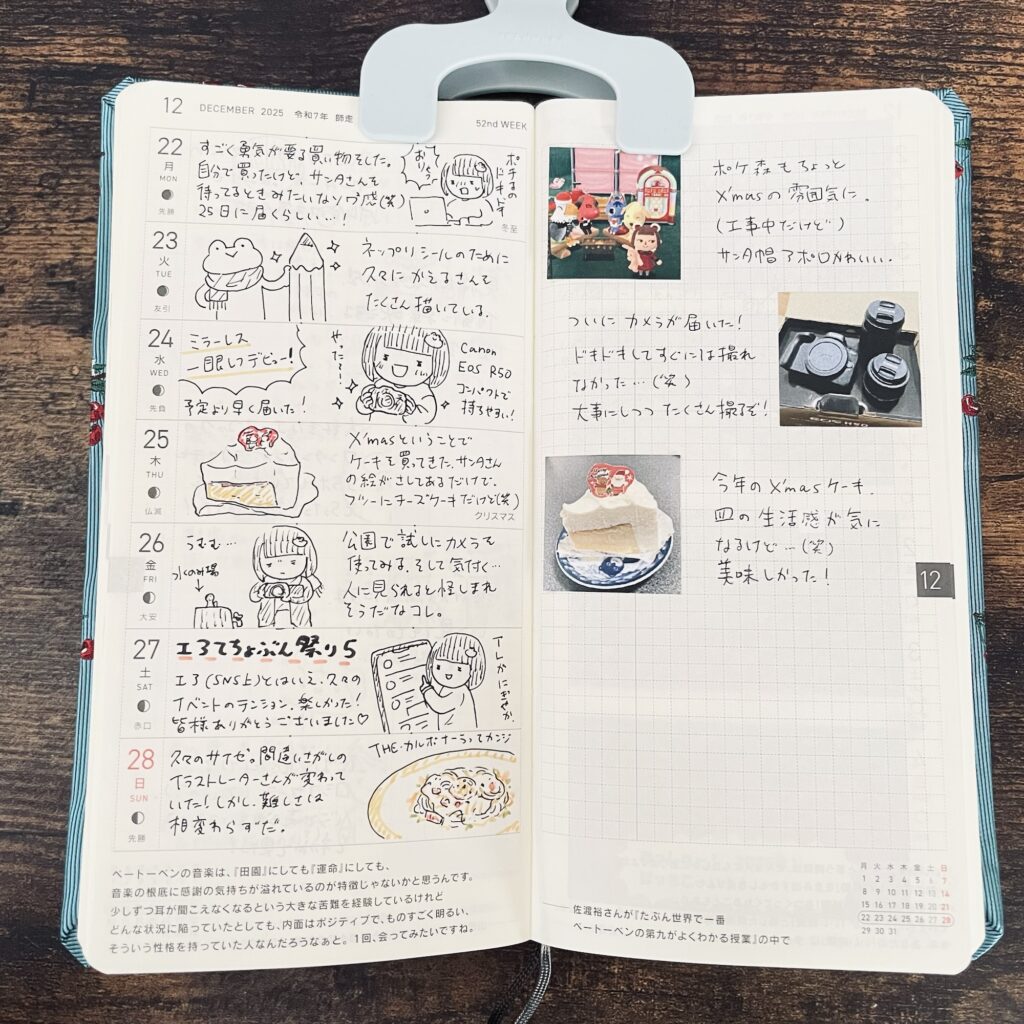 12 DECEMBER 2025 令和7年 師走
52nd WEEK
22
月
MON
先勝
すごく勇気が要る買い物をした。
自分で買ったけど、サンタさんを
待ってるときみたいなソワソワ感(笑)
25日に届くらしい…!
おりゃっ
ポチるの
ドキドキ
冬至
23
火
TUE
友引
ネップリシールのために
久々にかえるさんを
たくさん描いている。
24
水
WED
先負
ミラーレス
一眼レフデビュー!
予定より早く届いた!
やったー!
Canon
EOS R50
コンパクトで
持ちやすい!
25
木
THU
仏滅
X'masということで
ケーキを買ってきた。サンタさん
の絵がさしてあるだけで、
フツーにチーズケーキだけど(笑)
クリスマス
26
金
FRI
大安
うむむ…
水のみ場
公園で試しにカメラを
使ってみる。そして気付く…
人に見られると怪しまれ
そうだなコレ。
27
土
SAT
赤口
エ3てちょぶん祭り5
エ3(SNS上)とはいえ、久々の
イベントのテンション。楽しかった!
皆様ありがとうございました♡
TLがにぎやか。
28
日
SUN
先勝
久々のサイゼ。間違いさがしの
イラストレーターさんが変わって
いた!しかし、難しさは
相変わらずだ。
THE・カルボナーラってカンジ
ベートーベンの音楽は、『田園』にしても『運命』にしても、
音楽の根底に感謝の気持ちが溢れているのが特徴じゃないかと思うんです。
少しずつ耳が聞こえなくなるという大きな苦難を経験しているけれど
どんな状況に陥っていたとしても、内面はポジティブで、ものすごく明るい、
そういう性格を持っていた人なんだろうなぁと。1回、会ってみたいですね。
ポケ森もちょっと
X'masの雰囲気に。
(工事中だけど)
サンタ帽アポロかわいい。
ついにカメラが届いた!
ドキドキしてすぐには撮れ
なかった…(笑)
大事にしつつたくさん撮るぞ!
EOS R50
今年のX'masケーキ。
皿の生活感が気に
なるけど…(笑)
美味しかった!
12
月 火 水 木 金 土 日
1 2 3 4 5 6 7
8 9 10 11 12 13 14
15 16 17 18 19 20 21
22 23 24 25 26 27 28
29 30 31
佐渡裕さんが『たぶん世界で一番
ベートーベンの第九がよくわかる授業』の中で